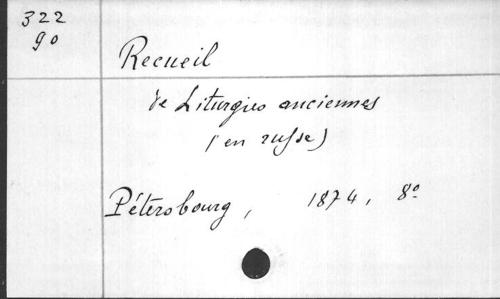 322
90
Recueil
de Liturgies anciennes
(en russe)
Pétersbourg, 1874, 8°